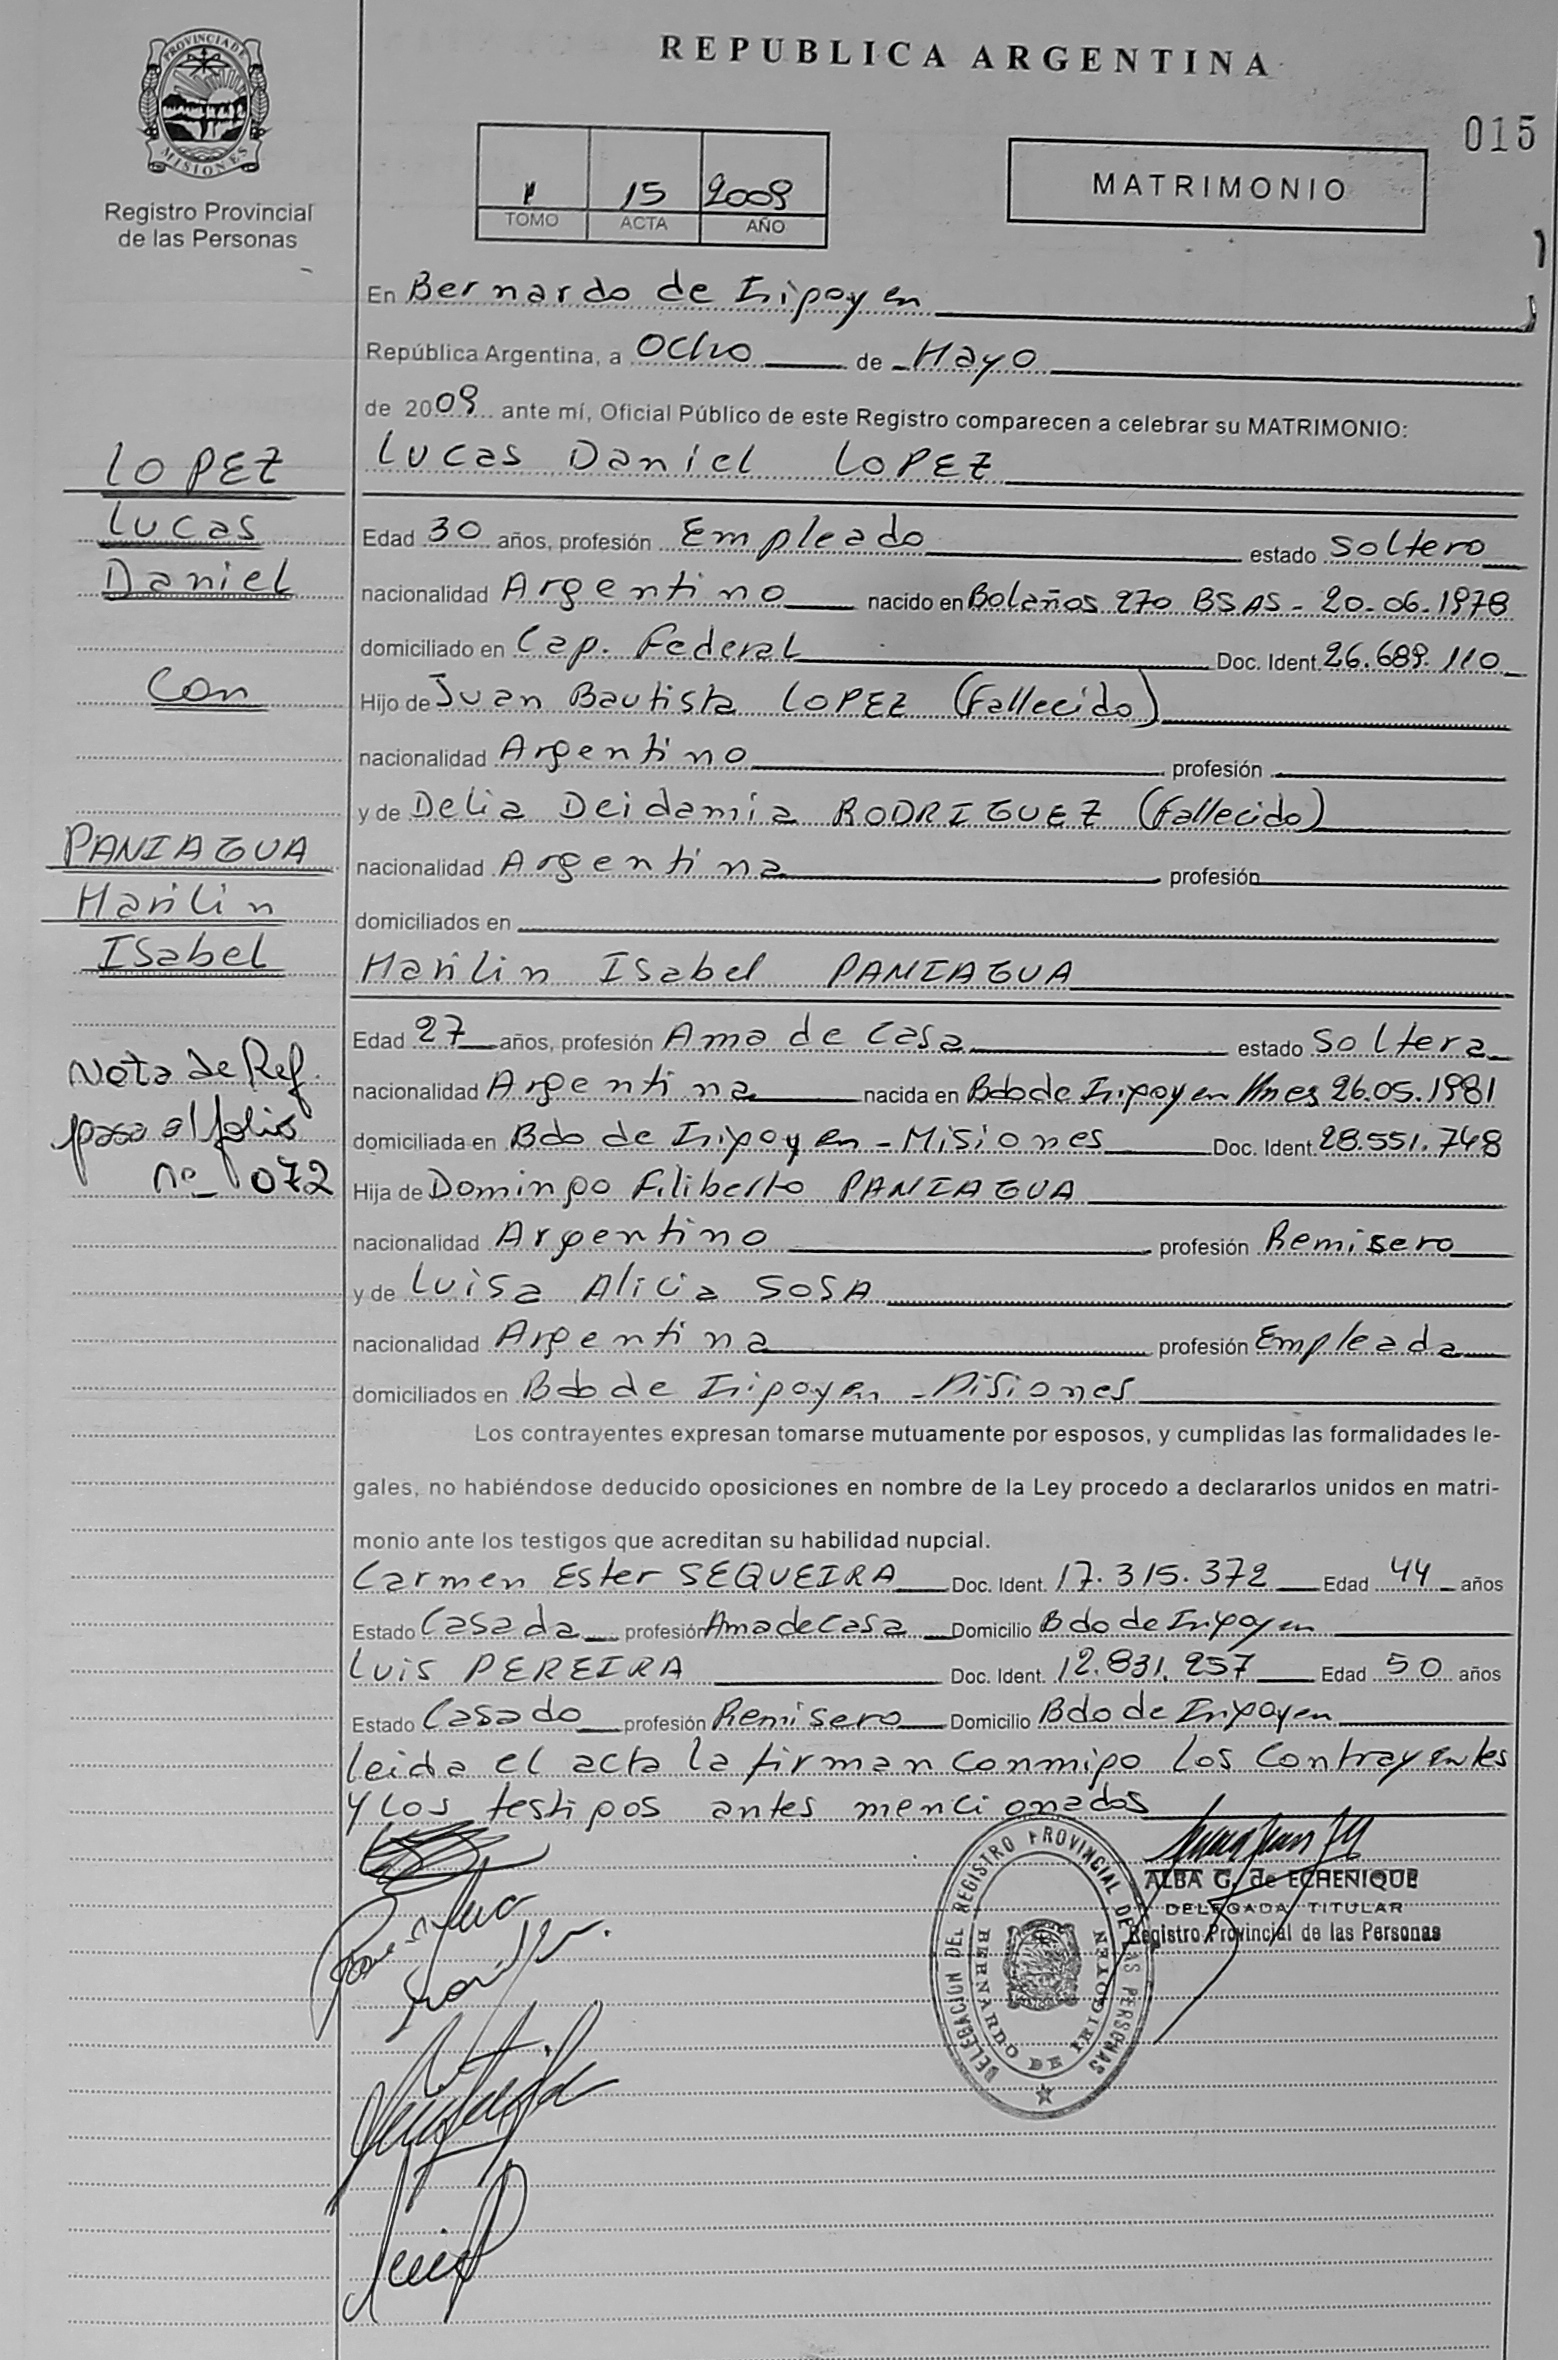 PROVINCIA DE
MISIONES
Registro Provincial
de las Personas
REPUBLICA ARGENTINA
015
1 15 2009
TOMO ACTA AÑO
MATRIMONIO
En Bernardo de Irigoyen
República Argentina, a Ocho de Mayo
de 2009 ante mí, Oficial Público de este Registro comparecen a celebrar su MATRIMONIO:
LOPEZ
Lucas
Daniel
Con
PANIAGUA
Marilin
Isabel
Nota de Ref.
pasa al folio
nº 072
Lucas Daniel LOPEZ
Edad 30 años, profesión Empleado estado Soltero
nacionalidad Argentino nacido en Bolaños 270 BSAS - 20-06-1978
domiciliado en Cap. Federal Doc. Ident. 26.689.110
Hijo de Juan Bautista LOPEZ (Fallecido)
nacionalidad Argentino profesión
y de Delia Deidamia RODRIGUEZ (Fallecido)
nacionalidad Argentina profesión
domiciliados en
Marilin Isabel PANIAGUA
Edad 27 años, profesión Ama de Casa estado Soltera
nacionalidad Argentina nacida en Bdo de Irigoyen Mnes 26.05.1981
domiciliada en Bdo de Irigoyen - Misiones Doc. Ident. 28.551.748
Hija de Domingo Filiberto PANIAGUA
nacionalidad Argentino profesión Remisero
y de Luisa Alicia SOSA
nacionalidad Argentina profesión Empleada
domiciliados en Bdo de Irigoyen - Misiones
Los contrayentes expresan tomarse mutuamente por esposos, y cumplidas las formalidades le-
gales, no habiéndose deducido oposiciones en nombre de la Ley procedo a declararlos unidos en matri-
monio ante los testigos que acreditan su habilidad nupcial.
Carmen Ester SEQUEIRA Doc. Ident. 17.315.372 Edad 44 años
Estado Casada profesión Ama de Casa Domicilio Bdo de Irigoyen
Luis PEREIRA Doc. Ident. 12.831.257 Edad 50 años
Estado Casado profesión Remisero Domicilio Bdo de Irigoyen
leida el acta la firman conmigo los contrayentes
y los testigos antes mencionados
ALBA G. de ECHENIQUE
DELEGADA TITULAR
Registro Provincial de las Personas
DELEGACION DEL REGISTRO PROVINCIAL DE LAS PERSONAS
BERNARDO DE IRIGOYEN